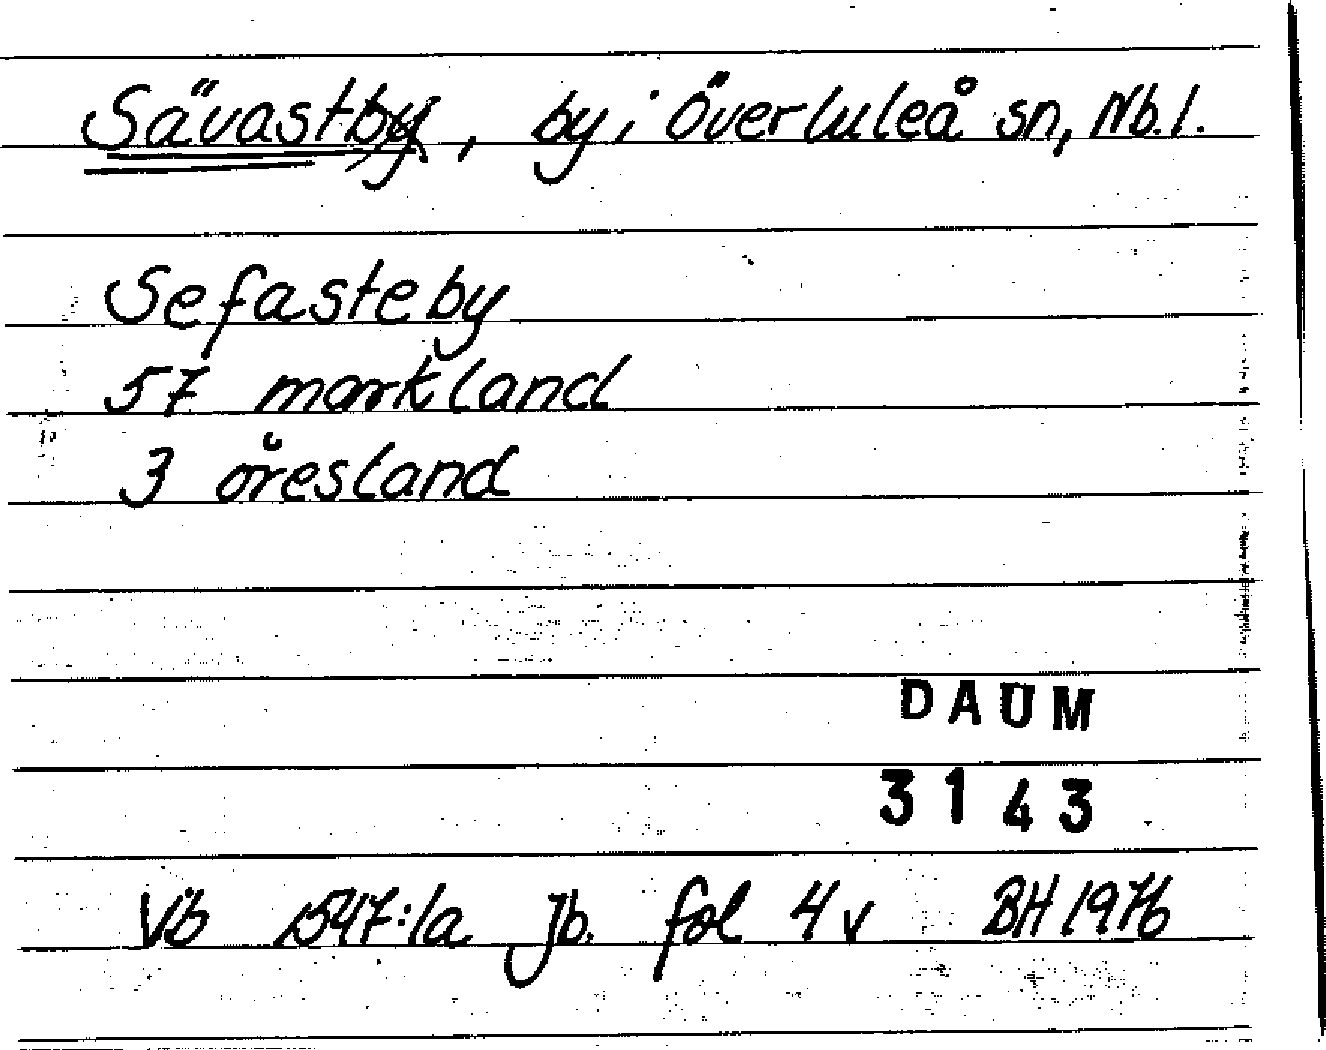 Sävastby, by i Överluleå sn, Nb.l.
Sefasteby
57 markland
3 öresland
DAUM
3143
Vb 1547:1a jb. fol 4v BH 1976